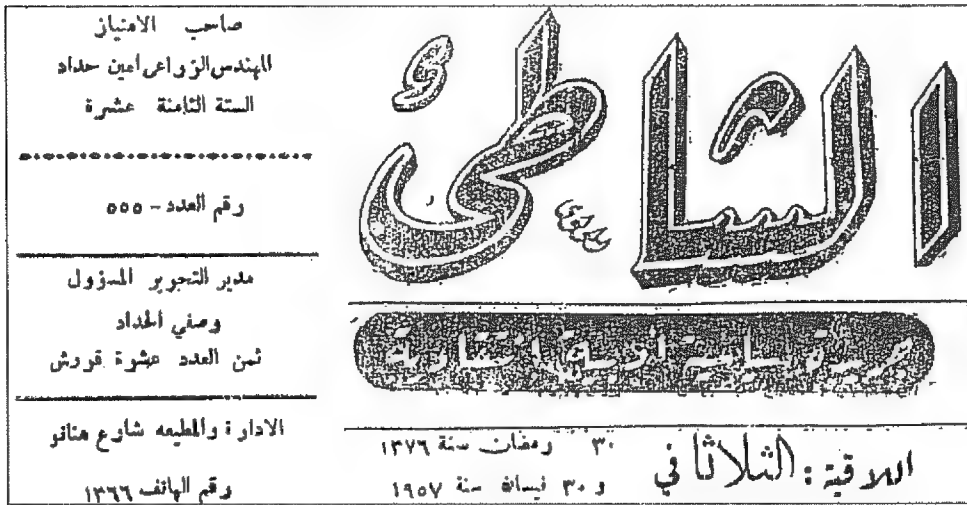 الشاطئ
اللاذقية : الثلاثا في
٣٠ رمضان سنة ١٣٧٦
و ٣٠ نيسان سنة ١٩٥٧
صاحب الامتياز
المهندس الزراعي امين حداد
السنة الثامنة عشرة
رقم العدد - ٥٥٥
مدير التحرير المسؤول
وصفي الحداد
ثمن العدد عشرة قروش
الادارة والمطبعه شارع هنانو
رقم الهاتف ١٣٦٦